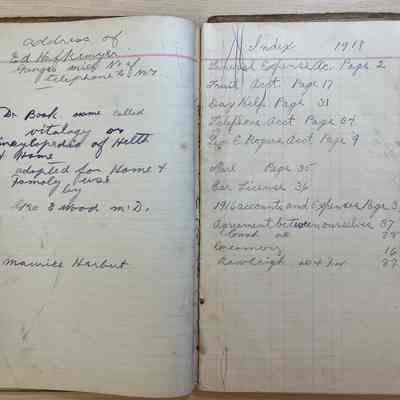 address of
Ed
Ranges milk
telephone
Dr Book name called
vitology or
Encyclopedia of Helth
& Home
adapted for Home &
Famoly use
by
Geo E Wood M.D.
Maurice Harbut
Index 1918
Expense Ac. Page 2
Fruit Acct. Page 17
Day Help Page 31
Telephone Acct Page 54
Geo E Rogers Acct Page 9
Page 35
Car License 36
1916 accounts and Expenses Page 3
Agreement between ourselves 37
Creamery 16
Rawleigh